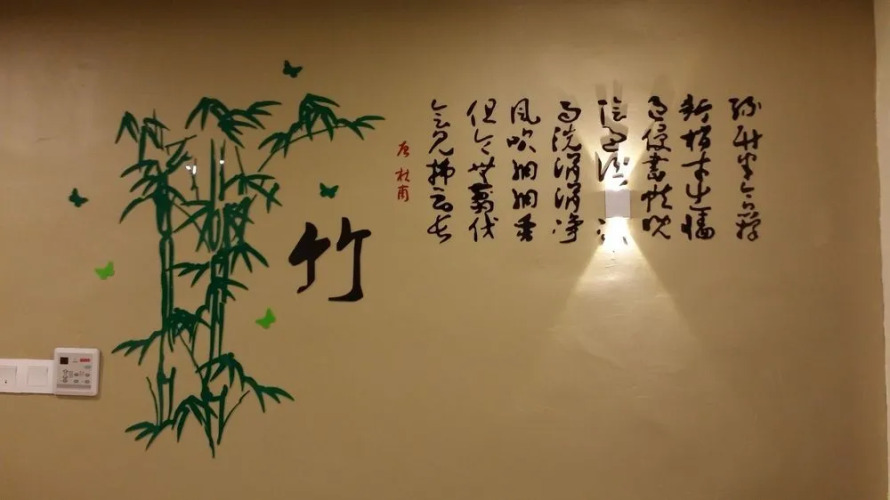 绿竹半含籜
新梢才出墙
色侵書帙晚
阴过酒凉
雨洗涓涓净
風吹细细香
但令無剪伐
会见拂云长
唐 杜甫
竹